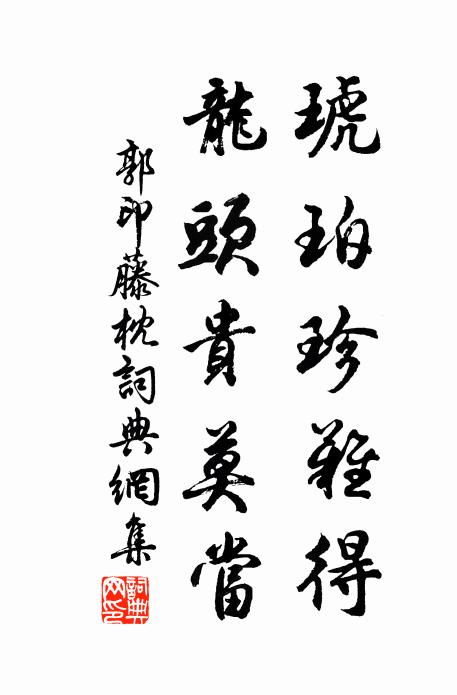 琥珀珍難得
龍頭貴莫當
郭印藤枕詞典網集
詞典網印